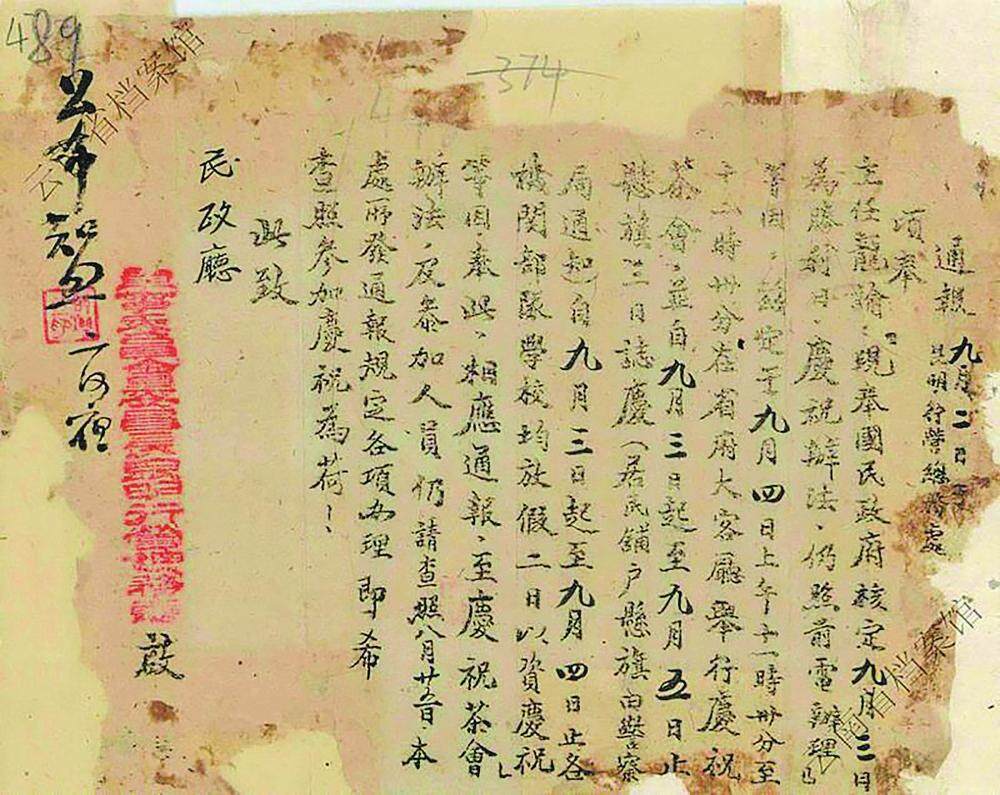 489
374
通報 九月二日
昆明行營總務處
頃奉
主任龍諭、「現奉國民政府核定九月三日
為勝利日、慶祝辦法、仍照前電辦理」
等因、茲定于九月四日上午十一時卅分至
十二時卅分在省府大客廳舉行慶祝
茶會、並自九月三日起至九月五日止
懸旗三日誌慶（居民鋪户懸旗由警察
局通知自九月三日起至九月四日止各
機関部隊學校均放假二日以資慶祝」
等因奉此、相應通報、至慶祝茶會
辦法、及參加人員仍請查照八月廿五日本
處所發通報規定各項办理即希
查照參加慶祝為荷！
此致
民政廳
昆明行營總務處
啟
公布知照
云南省档案馆
云南省档案馆